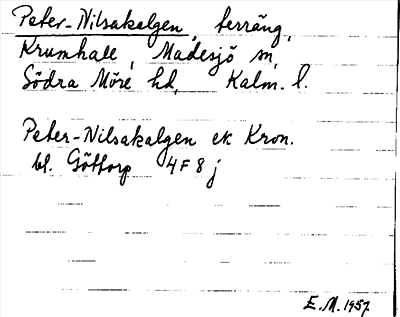 Peter-Nilsakalgen, terräng,
Krumhall, Madesjö sn,
Södra Möre hd, Kalm. l.
Peter-Nilsakalgen ek Kron.
bl. Göttorp 4F8j
E.M. 1957